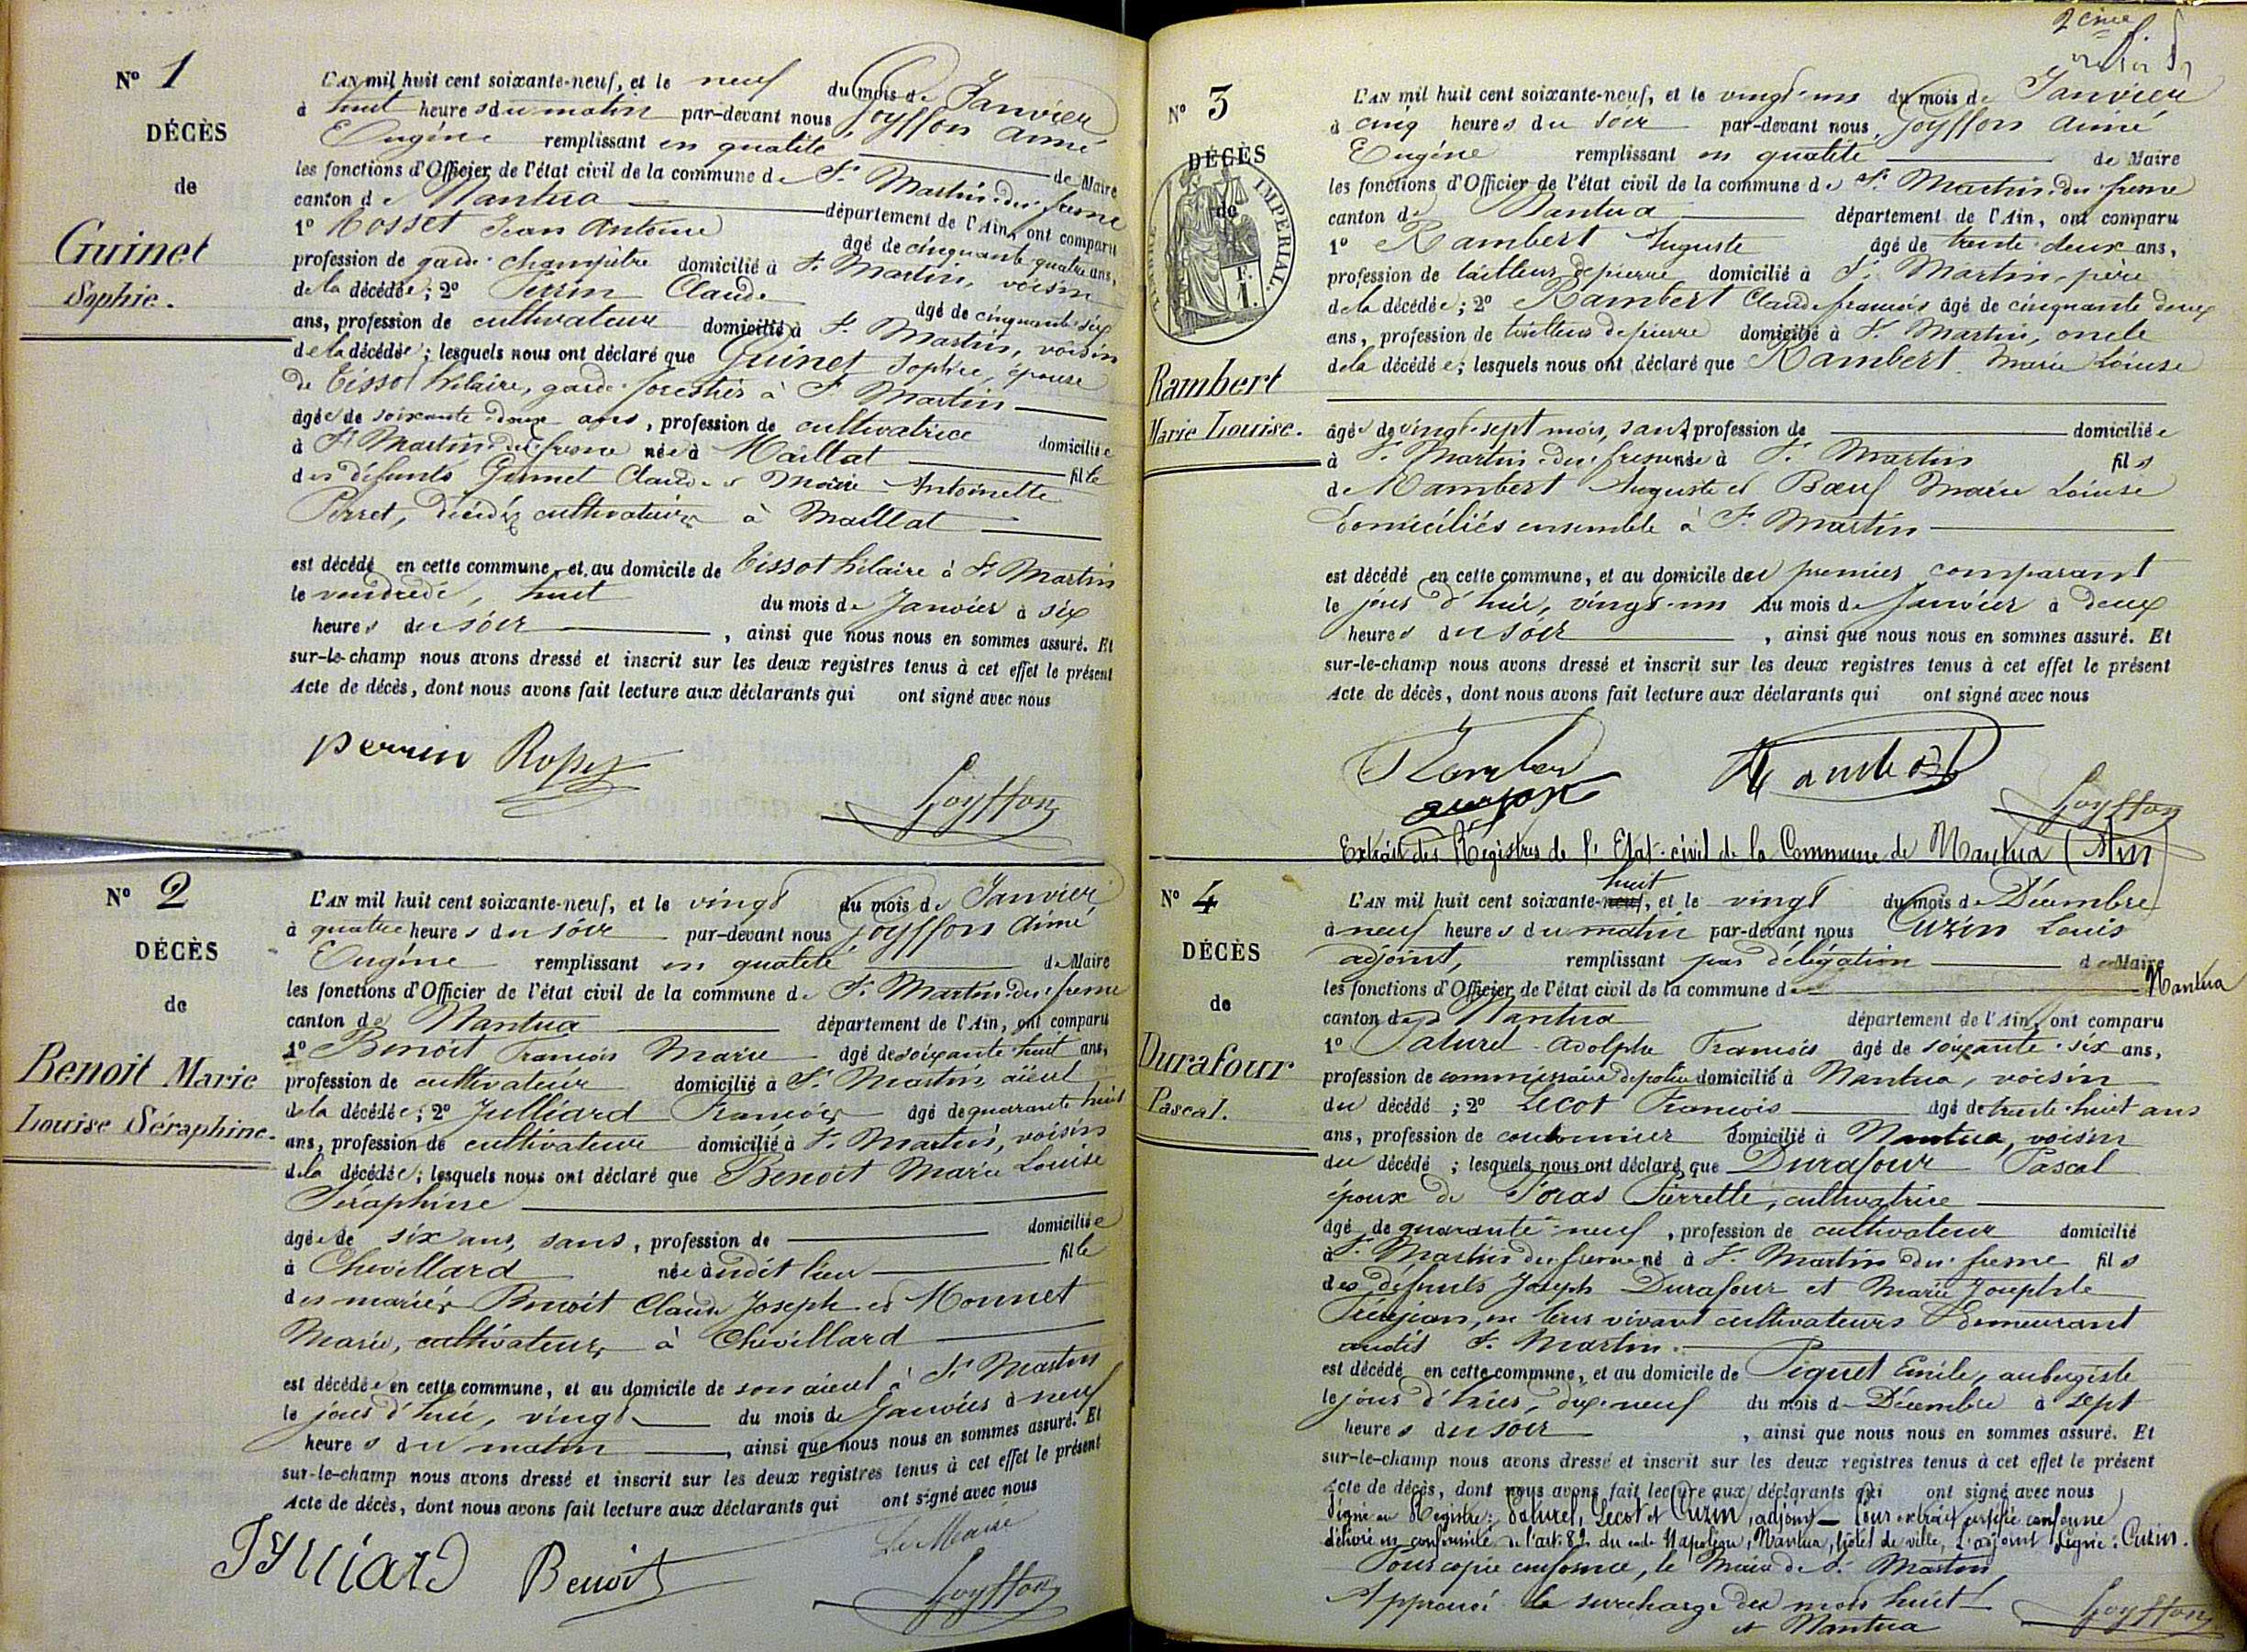 N° 1
DÉCÈS
de
Guinet
Sophie.
L'AN mil huit cent soixante-neuf, et le neuf du mois de Janvier
à huit heures du matin par-devant nous Goyffon Aimé
Eugène remplissant en qualité de Maire
les fonctions d'Officier de l'état civil de la commune de St Martin-du-fresne
canton de Nantua département de l'Ain, ont comparu
1° Rosset Jean Antoine âgé de cinquante quatre ans,
profession de garde-champêtre domicilié à St Martin, voisin
de la décédée; 2° Perrin Claude âgé de cinquante six
ans, profession de cultivateur domicilié à St Martin, voisin
de la décédée; lesquels nous ont déclaré que Guinet Sophie, épouse
de Tissot hilaire, garde-forestier à St Martin
âgée de soixante-deux ans, profession de cultivatrice domiciliée
à St Martin-du-fresne née à Maillat fille
des défunts Guinet Claude et Marie Antoinette
Perret, décédés cultivateurs à Maillat
est décédé en cette commune, et au domicile de Tissot hilaire à St Martin
le vendredi, huit du mois de Janvier à six
heures du soir, ainsi que nous nous en sommes assuré. Et
sur-le-champ nous avons dressé et inscrit sur les deux registres tenus à cet effet le présent
Acte de décès, dont nous avons fait lecture aux déclarants qui ont signé avec nous
perrin Rosset
Goyffon
N° 2
DÉCÈS
de
Benoit Marie
Louise Séraphine.
L'AN mil huit cent soixante-neuf, et le vingt du mois de Janvier
à quatre heures du soir par-devant nous Goyffon Aimé
Eugène remplissant en qualité de Maire
les fonctions d'Officier de l'état civil de la commune de St Martin-du-fresne
canton de Nantua département de l'Ain, ont comparu
1° Benoit François Marie âgé de soixante-huit ans,
profession de cultivateur domicilié à St Martin, aïeul
de la décédée; 2° Julliard François âgé de quarante huit
ans, profession de cultivateur domicilié à St Martin, voisin
de la décédée; lesquels nous ont déclaré que Benoit Marie Louise
Séraphine
âgée de six ans, sans, profession de domiciliée
à Chevillard née audit lieu fille
des mariés Benoit Claude Joseph et Monnet
Marie, cultivateurs à Chevillard
est décédée en cette commune, et au domicile de son aieul à St Martin
le jour d'hui, vingt du mois de Janvier à neuf
heures du matin, ainsi que nous nous en sommes assuré. Et
sur-le-champ nous avons dressé et inscrit sur les deux registres tenus à cet effet le présent
Acte de décès, dont nous avons fait lecture aux déclarants qui ont signé avec nous
Le Maire
Julliard Benoit
Goyffon
N° 3
DÉCÈS
de
TIMBRE IMPÉRIAL.
Rambert
Marie Louise.
L'AN mil huit cent soixante-neuf, et le vingt-un du mois de Janvier
à cinq heures du soir par-devant nous, Goyffon Aimé
Eugène remplissant en qualité de Maire
les fonctions d'Officier de l'état civil de la commune de St Martin-du-fresne
canton de Nantua département de l'Ain, ont comparu
1° Rambert Auguste âgé de trente-deux ans,
profession de tailleur de pierre domicilié à St Martin, père
de la décédée; 2° Rambert Claude françois âgé de cinquante deux
ans, profession de tailleur de pierre domicilié à St Martin, oncle
de la décédée; lesquels nous ont déclaré que Rambert Marie Louise
âgée de vingt-sept mois, sans, profession de domiciliée
à St Martin-du-fresne née à St Martin fils
de Rambert Auguste et Bœuf Marie Louise
Domiciliés ensemble à St Martin
est décédé en cette commune, et au domicile du premier comparant
le jour d'hui, vingt-un du mois de Janvier à deux
heures du soir, ainsi que nous nous en sommes assuré. Et
sur-le-champ nous avons dressé et inscrit sur les deux registres tenus à cet effet le présent
Acte de décès, dont nous avons fait lecture aux déclarants qui ont signé avec nous
Rambert Rambert
Goyffon
Extrait des Registres de l'Etat-civil de la Commune de Nantua (Ain)
N° 4
DÉCÈS
de
Durafour
Pascal.
huit
L'AN mil huit cent soixante-neuf, et le vingt du mois de Décembre
à neuf heures du matin par-devant nous Cuzin Louis
adjoint, remplissant par délégation de Maire
les fonctions d'Officier de l'état civil de la commune de Nantua
canton de Nantua département de l'Ain, ont comparu
1° Paturel Adolphe François âgé de soixante-six ans,
profession de commissaire de police domicilié à Nantua, voisin
du décédé; 2° Lecot François âgé de trente-huit ans
ans, profession de cordonnier domicilié à Nantua, voisin
du décédé; lesquels nous ont déclaré que Durafour Pascal
époux de Poras Pierrette, cultivatrice
âgé de quarante-neuf, profession de cultivateur domicilié
à St Martin du fresne né à St Martin du fresne fils
des défunts Joseph Durafour et Marie Josephte
en leur vivant cultivateurs demeurant
audit St Martin.
est décédé en cette commune, et au domicile de Piquet Emile, aubergiste
le jour d'hier, dix-neuf du mois de Décembre à sept
heures du soir, ainsi que nous nous en sommes assuré. Et
sur-le-champ nous avons dressé et inscrit sur les deux registres tenus à cet effet le présent
Acte de décès, dont nous avons fait lecture aux déclarants qui ont signé avec nous
Signé au Registre: Paturel, Lecot et Cuzin, adjoint — Pour extrait certifié conforme
délivré en conformité de l'art. 82 du code Napoléon, Nantua, hôtel de ville, L'adjoint Signé: Cuzin.
Pour copie conforme, le Maire de St Martin,
Approuvé la surcharge des mots huit
et Nantua
Goyffon